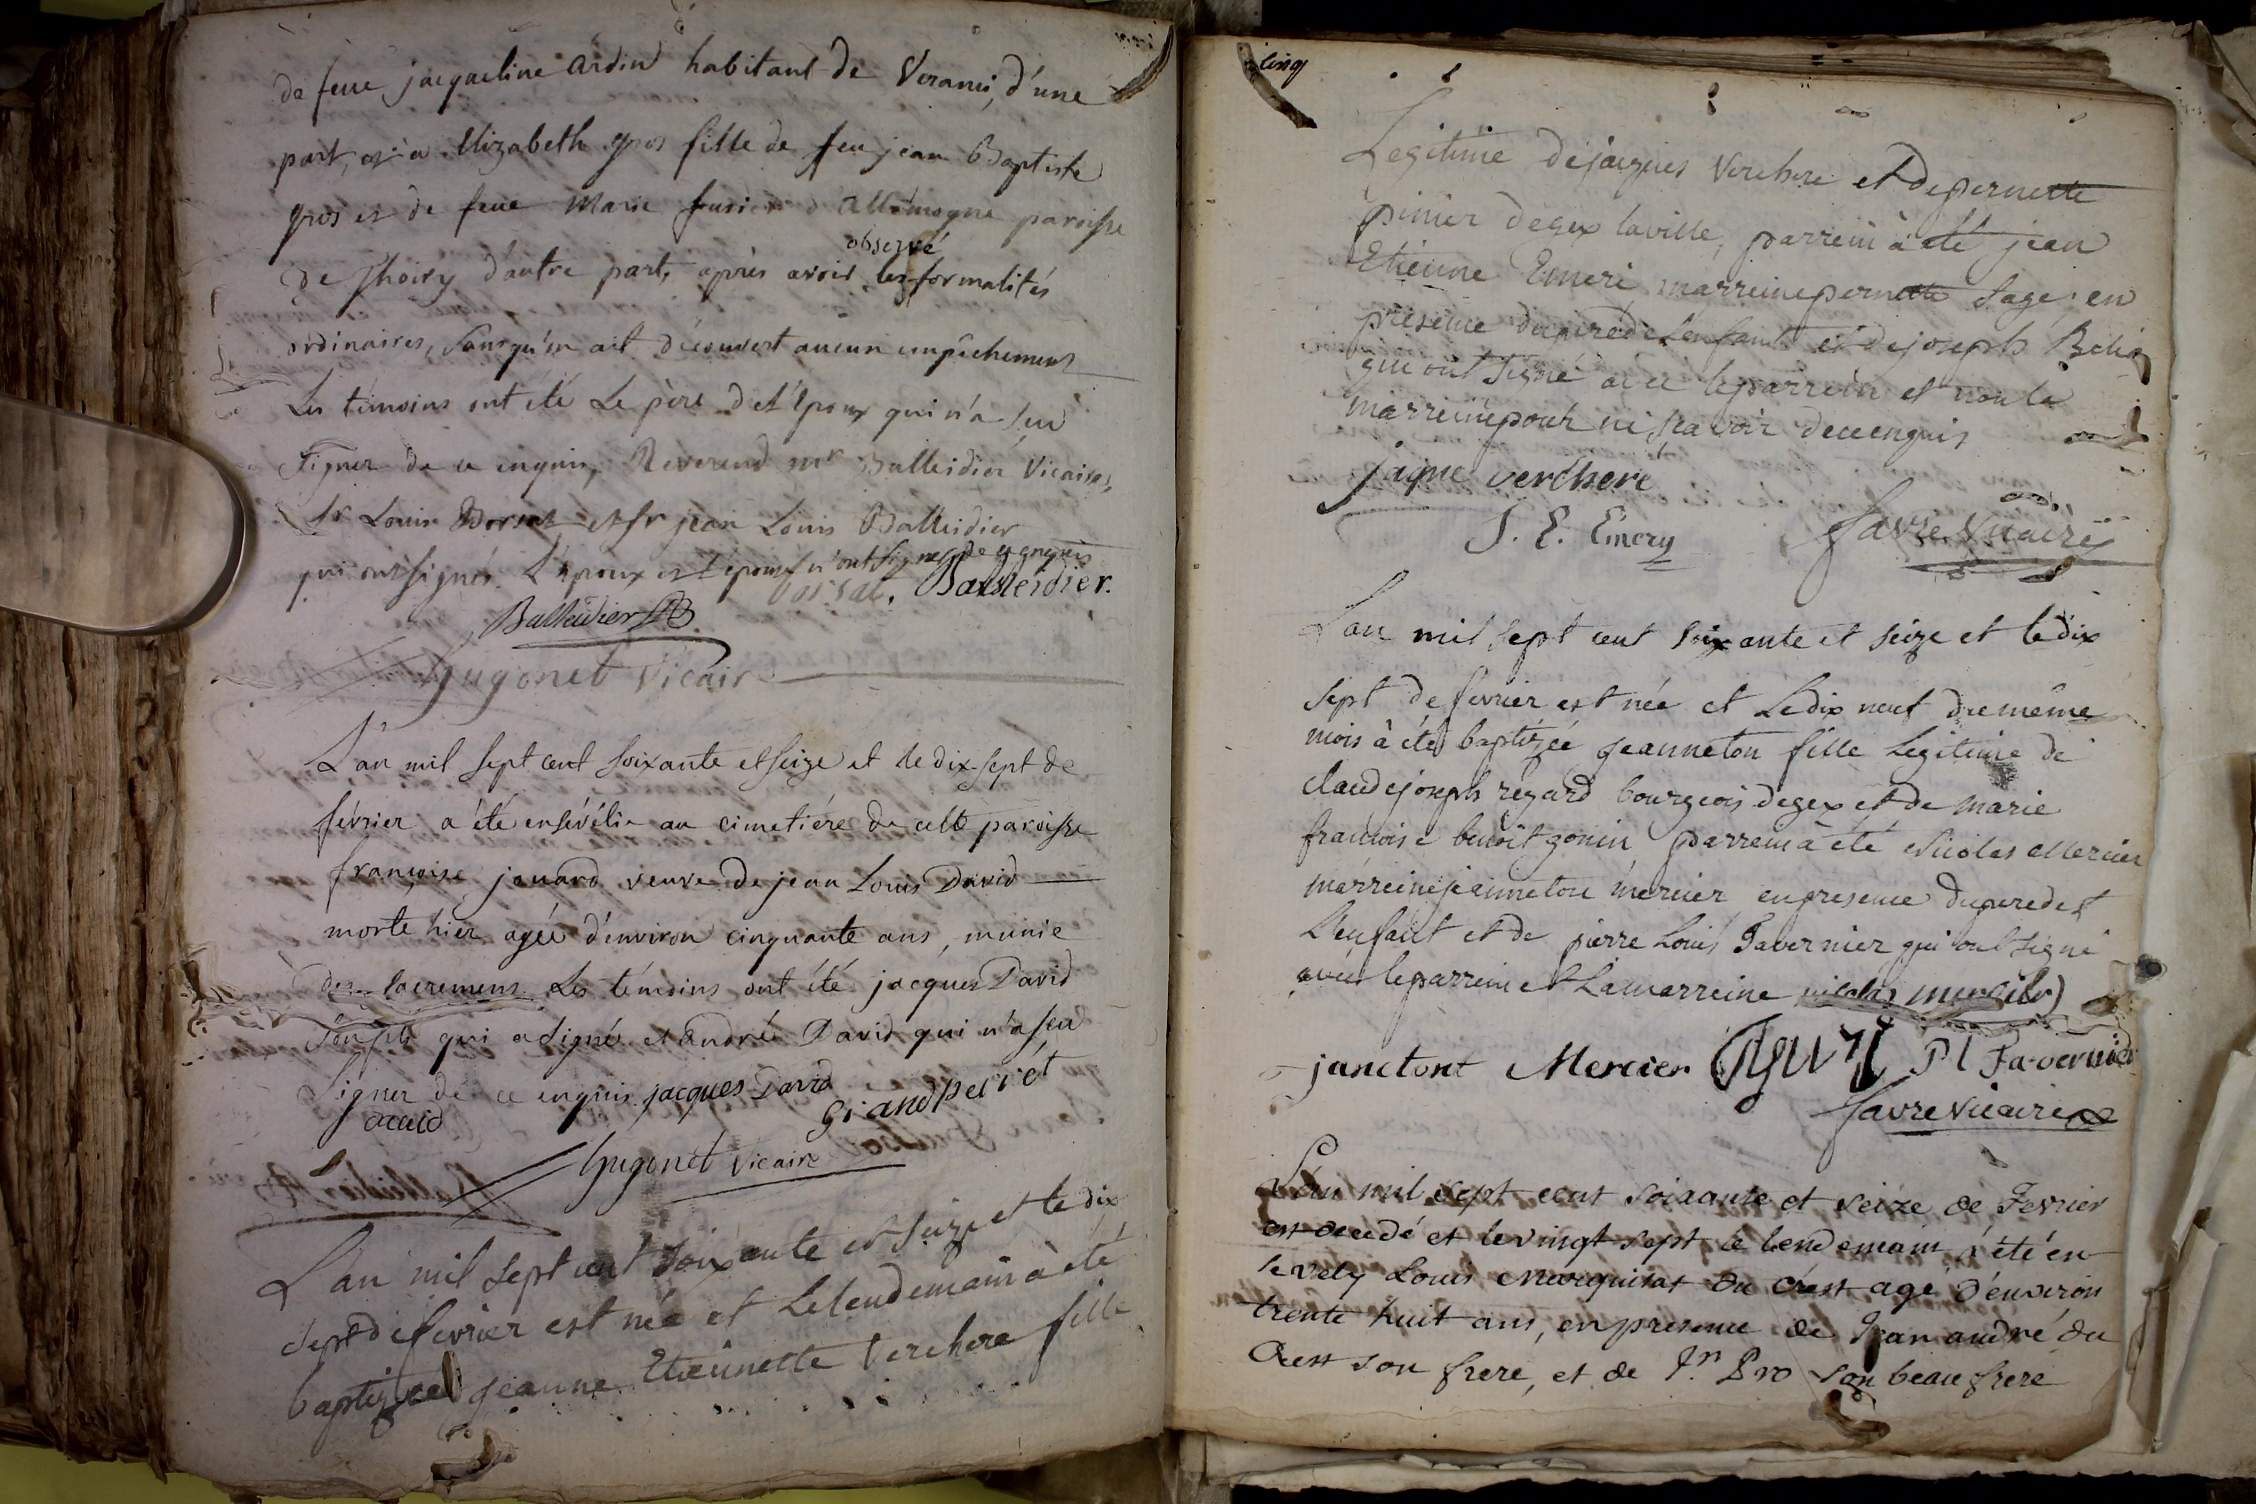 de feue jacqueline ardin habitant de Veranci, d'une
part, et a Elizabeth gros fille de feu jean Baptiste
gros et de feue Marie fusier d'allemogne paroisse
observé
de Thoiry d'autre part, après avoir les formalités
ordinaires, sans qu'on ait découvert aucun empêchement
Les témoins ont été Le père de l'époux qui n'a seu
signer de ce enquis, Reverend mr Balleidier Vicaire,
sr Louis Borsat et sr jean Louis Balleidier
qui ont signés. L'époux et l'épouse n'ont signé de ce enquis
Borsat. Balleidier.
Balleidier
hugonet Vicaire
L'an mil sept cent soixante et seize et le dix-sept de
février a été ensévélie au cimetiére de cette paroisse
françoise jouard veuve de jean Louis David
morte hier agée d'environ cinquante ans, munie
des sacremens Les témoins ont été jacques David
qui a signé et andré David qui n'a seu
signer de ce enquis jacques David
david Grandperret
hugonet Vicaire
L'an mil sept cent soixante et seize et le dix
sept de fevrier est née et Le lendemain à été
baptizée jeanne Etiennette Verchere fille
cinq
Legitime de jacques Verchere et de pernette
pinier de gex la ville, parrein à été jean
Etienne Emeri marreine pernette sage en
presence du pere de L'enfant et de joseph
qui ont signé avec le parrein et non la
marreine pour ne sçavoir de ce enquis
jaque verchere
J. E. Emery favre Vicaire
L'an mil sept cent soixante et seize et le dix
sept de fevrier est née et Le dix neuf du même
mois à été baptizée jeanneton fille Legitime de
claude joseph regard bourgeois de gex et de marie
francoise benoit gonin parrein à été Nicolas Mercier
marreine jeanneton mercier en presence du pere de
L'enfant et de pierre Louis Tavernier qui ont signé
avec le parrein et La marreine nicolas mercier
janetont Mercier P L Tavernier
favre vicaire
L'an mil sept cent soixante et seize de Fevrier
est decedé et le vingt-sept le lendemain a été en-
sevely Louis Marquisat du Crest agé d'environ
trente huit ans, en presence de Jean andré du
Crest son frere, et de Jn Pro son beau frere